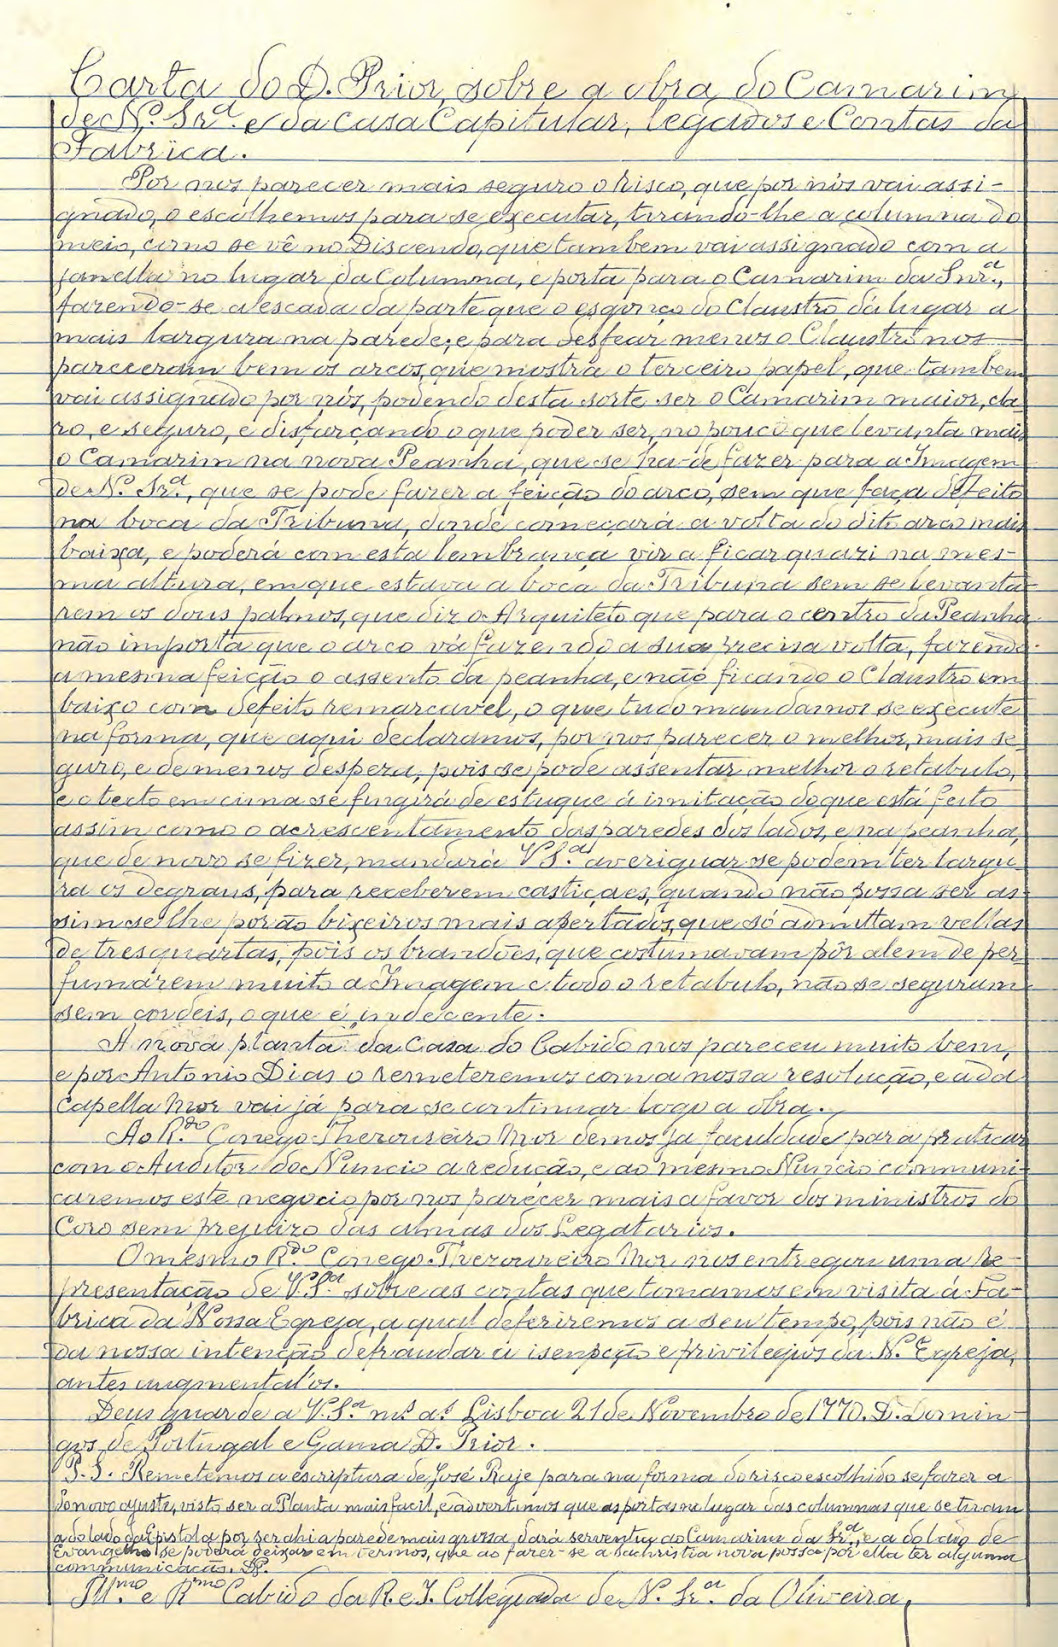 Carta do D. Prior, sobre a obra do Camarim
de N.ª Sr.ª e da Casa Capitular, legados e Contas da
Fabrica.
Por nos parecer mais seguro o risco, que por nós vai assi-
gnado, o escolhemos para se executar, tirando-lhe a columna do
meio, como se vê no Discendo, que tambem vai assignado com a
janella no lugar da Columna, e porta para o Camarim da Snr.ª,
fazendo-se a escada da parte que o esgonço do Claustro dá lugar a
mais largura na parede; e para desfear menos o Claustro nos
pareceram bem os arcos, que mostra o terceiro papel, que tambem
vai assignado por nós, podendo desta sorte ser o Camarim maior, cla-
ro, e seguro, e disfarçando o que poder ser, no pouco que levanta mais
o Camarim na nova Peanha, que se ha-de fazer para a Imagem
de N.ª Sr.ª, que se pode fazer a feição do arco, sem que faça defeito
na boca da Tribuna, donde começará a volta do dito arco mais
baixa, e poderá com esta lembrança vir a ficar quazi na mes-
ma altura, em que estava a boca da Tribuna sem se levanta-
rem os dous palmos, que diz o Arquiteto que para o centro da Peanha
não importa que o arco vá fazendo a sua precisa volta, fazendo
a mesma feição o assento da peanha, e não ficando o Claustro em
baixo com defeito remarcavel, o que tudo mandamos se execute
na forma, que aqui declaramos, por nos parecer o melhor, mais se-
guro, e de menos despeza, pois se pode assentar melhor o retabulo,
e o tecto em cima se fingirá de estuque á imitação do que está feito
assim como o acrescentamento das paredes dos lados, e na peanha,
que de novo se fizer, mandará V.S.ª averiguar se podem ter largu-
ra os degraus, para receberem castiçaes, quando não possa ser as-
sim se lhe porão bixeiros mais apertados, que só admittam vellas
de tres quartas, pois os brandões, que costumavam pôr alem de per-
fumarem muito a Imagem e todo o retabulo, não se seguram
sem cordeis, o que é indecente.
A nova planta da Casa do Cabido nos pareceu muito bem,
e por Antonio Dias o remeteremos com a nossa resolução, e a da
Capella Mor vai já para se continuar logo a obra.
Ao R.do Conego Thezoureiro Mor demos já faculdade para praticar
com o Auditor do Nuncio a redução, e ao mesmo Nuncio communi-
caremos este negocio por nos parecer mais a favor dos ministros do
Coro sem prejuizo das almas dos Legatarios.
O mesmo R.do Conego Thezoureiro Mor nos entregou uma Re-
presentação de V.S.ª sobre as contas que tomamos em visita á Fa-
brica da Nossa Egreja, a qual deferiremos a seu tempo, pois não é
da nossa intenção defraudar a isenpção e privilegios da N.ª Egreja,
antes augmental'os.
Deus guarde a V.S.ª m.s a.s Lisboa 21 de Novembro de 1770. D. Domin-
gos de Portugal e Gama D. Prior.
P.S. Remetemos a escriptura de José Ruje para na forma do risco escolhido se fazer a
do novo ajuste, visto ser a Planta mais facil, e advertimos que as portas no lugar das columnas que se tiram
a do lado da Epistola por ser ahi a parede mais grossa, dará serventia ao Camarim da Sr.ª, e a do lado do
Evangelho se poderá deixar em termos, que ao fazer-se a Sachristia nova possa por ella ter alguma
communicação. DP.
Ill.mo e R.mo Cabido da R. e I. Collegiada de N. Sr.ª da Oliveira,